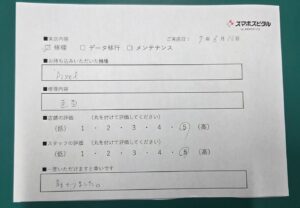 スマホスピタル
■来店内容 ご来店日: 7年8月16日
☑ 修理 □ データ移行 □ メンテナンス
■お持ち込みいただいた機種
pixel
■修理内容
画面
■店舗の評価 (丸を付けて評価してください)
(低) 1 ・ 2 ・ 3 ・ 4 ・ 5 (高)
■スタッフの評価 (丸を付けて評価してください)
(低) 1 ・ 2 ・ 3 ・ 4 ・ 5 (高)
■一言いただけますと幸いです
助かりました。